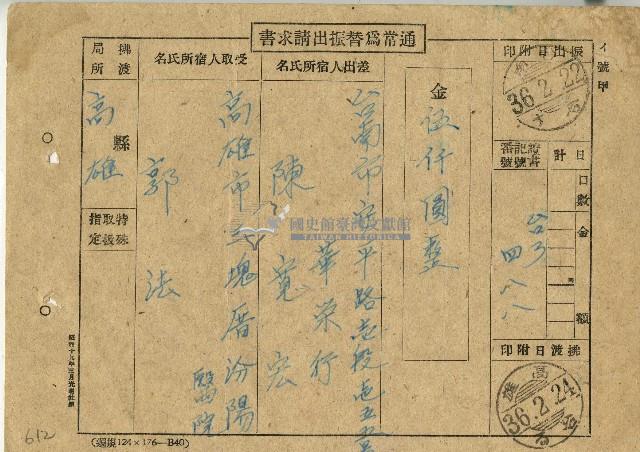 通常為替振出請求書
イ號甲
振出日附印
36.2.22
證書記號番號
台ろ
四八八
日計
口數
金額
拂渡日附印
高雄
36.2.24
金
伍仟圓整
差出人宿所氏名
台南市
華榮行
陳寬宏
受取人宿所氏名
高雄市三塊厝汾陽醫院
郭法
拂渡局所
高雄縣
特殊取扱指定
國史館臺灣文獻館
TAIWAN HISTORICA
612
(規格124×176—B40)